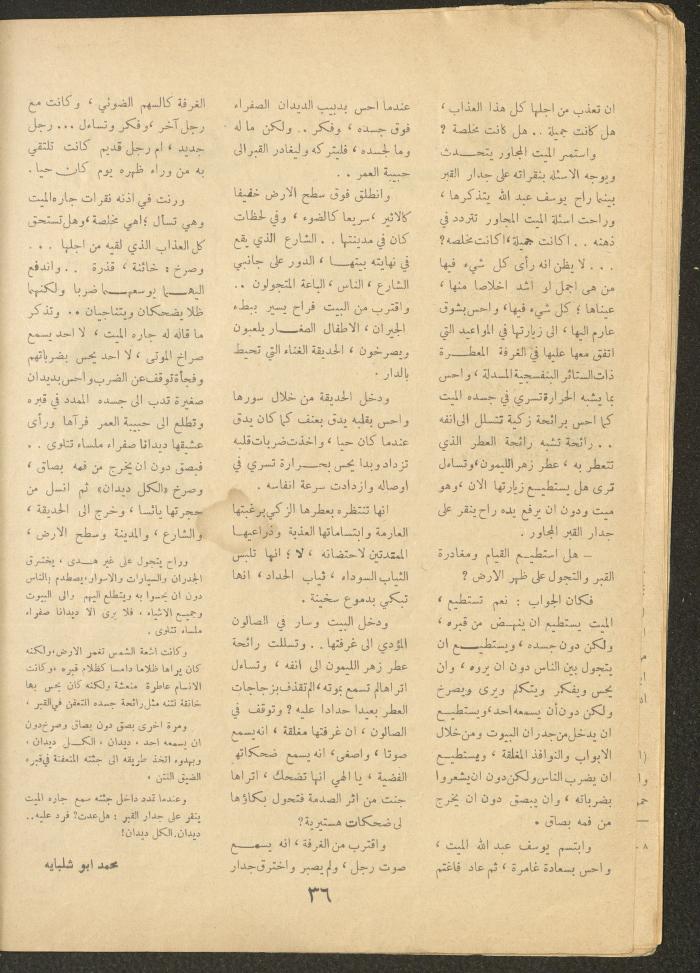 ان تعذب من اجلها كل هذا العذاب ،
هل كانت جميلة . . هل كانت مخلصة ?
واستمر الميت المجاور يتحـــدث
ويوجه الاسئلة بنقراته على جدار القبر
بينما راح يوسف عبد الله يتذكرها ،
وراحت اسئلة الميت المجاور تتردد في
ذهنه . . اكانت جميلة ، اكانت مخلصه ?
. . . لا يظن انه رأى كل شيء فيها
من هى اجمل او اشد اخلاصا منها ،
عيناها ؛ كل شيء فيها، واحس بشوق
عارم اليها ، الى زيارتها في المواعيد التي
اتفق معها عليها في الغرفة المعطـــرة
ذات الستائر البنفسجية المسدلة ، واحس
بما يشبه الحرارة تسري في جسده الميت
كما احس برائحة زكية تتسلل الى انفه
. . رائحة تشبه رائحة العطر الذي
تتعطر به ، عطر زهر الليمون ، وتساءل
ترى هل يستطيع زيارتها الان ، وهو
ميت ودون ان يرفع يده راح ينقر على
جدار القبر المجاور .
– هل استطيع القيام ومغادرة
القبر والتجول على ظهر الارض ?
فكان الجواب : نعم تستطيع ،
الميت يستطيع ان ينهـض من قبره ،
ولكن دون جسده ، ويستطيـــع ان
يتجول بين الناس دون ان يروه ، وان
يحس ويفكر ويتكلم ويرى ويصرخ
ولكن دون أن يسمعه احد، ويستطيـع
ان يدخل من جدران البيوت ومن خلال
الابواب والنوافذ المغلقة ، ويستطيع
ان يضرب الناس ولكن دون ان يشعروا
بضرباته ، وان يبصق دون ان يخرج
من فمه بصاق .
وابتسم يوسف عبد الله الميت ،
واحس بسعادة غامرة ، ثم عاد فاغتم
عندما احس بدبيب الديدان الصفراء
فوق جسده ، وفكر . . ولكن ما له
وما لجسده ، فليتركه وليغادر القبر الى
حبيبة العمر . .
وانطلق فوق سطح الارض خفيفا
كالاثير ، سريعا كالضوء ، وفي لحظات
كان في مدينتها . . الشارع الذي يقع
في نهايته بيتهـــا ، الدور على جانبي
الشارع ، الناس ، الباعة المتجولون . .
واقترب من البيت فراح يسير ببطء
الجيران ، الاطفال الصغـــار يلعبون
ويصرخون ، الحديقة الغناء التي تحيط
بالدار .
ودخل الحديقة من خلال سورها
واحس بقلبه يدق بعنف كما كان يدق
عندما كان حيا ، واخذت ضربات قلبه
تزداد وبدا يحس بحـــرارة تسري في
اوصاله وازدادت سرعة انفاسه .
انها تنتظره بعطرها الزكي برغبتها
العارمة وابتساماتها العذبة وذراعيهـا
الممتدتين لاحتضانه ، لا ؛ انها تلبس
الثياب السوداء ، ثياب الحداد ، انها
تبكي بدموع سخينة .
ودخل البيت وسار في الصالون
المؤدي الى غرفتها . . وتسللت رائحة
عطر زهر الليمون الى انفه ، وتساءل
اتراها لم تسمع بموته ، الم تقذف بزجاجات
العطر بعيدا حدادا عليه ? وتوقف في
الصالون ، ان غرفتها مغلقة ، انه يسمع
صوتا ، واصغى، انه يسمع ضحكاتها
الفضية ، يا الهي انها تضحك ، اتراها
جنت من اثر الصدمة فتحول بكاؤها
لى ضحكات هستيرية?
واقترب من الغرفة ، انه يسمـــع
صوت رجل ، ولم يصبر واخترق جدار
الغرفة كالسهم الضوئي ، وكانت مع
رجل آخر ، وفكر وتساءل . . . رجل
جديد ، ام رجل قديم كانت تلتقي
به من وراء ظهره يوم كان حيا .
ورنت في اذنه نقرات جاره الميت
وهي تسأل ؛ اهي مخلصة ، وهل تستحق
كل العذاب الذي لقيه من اجلها . . .
وصرخ : خائنة ، قذرة . . واندفع
اليهـــما يوسعهـــما ضربا ولكنهما
ظلا يضحكان ويتناجيان . . وتذكر
ما قاله له جاره الميت ، لا احد يسمع
صراخ الموتى ، لا احد يحس بضرباتهم
وفجأة توقف عن الضرب واحس بديدان
صغيرة تدب الى جسده الممدد في قبره
وتطلع الى حبيبة العمر فرآها ورأى
عشيقها ديدانا صفراء ملساء تتلوى . .
فبصق دون ان يخرج من فمه بصاق ،
وصرخ «الكل ديدان» ثم انسل من
حجرتها يائسا ، وخرج الى الحديقة ،
والشارع ، والمدينة وسطح الارض ،
وراح يتجول على غير هـدى ، يخترق
الجدران والسيارات والاسوار، يصطدم بالناس
دون ان يحسوا به ويتطلع اليهم والى البيوت
وجميع الاشياء ، فلا يرى الا ديدانا صفراء
ملساء تتلوى .
وكانت اشعة الشمس تغمر الارض ، ولكنه
كان يراها ظلاما دامسا كظلام قبره ، وكانت
الانسام عاطرة منعشة ولكنه كان يحس بها
خانقة نتنة مثل رائحة جسده التعفن في القبر .
ومرة اخرى بصق دون بصاق وصرخ دون
ان يسمعه احد ، ديدان ، الكـــل ديدان ،
وبهدوء اتخذ طريقه الى جثته المتعفنة في قبره
الضيق النتن .
وعندما تمدد داخل جثته سمع جاره الميت
ينقر على جدار القبر : هل عدت? فرد عليه..
ديدان.. الكل ديدان!
محمد ابو شلبايه
٣٦